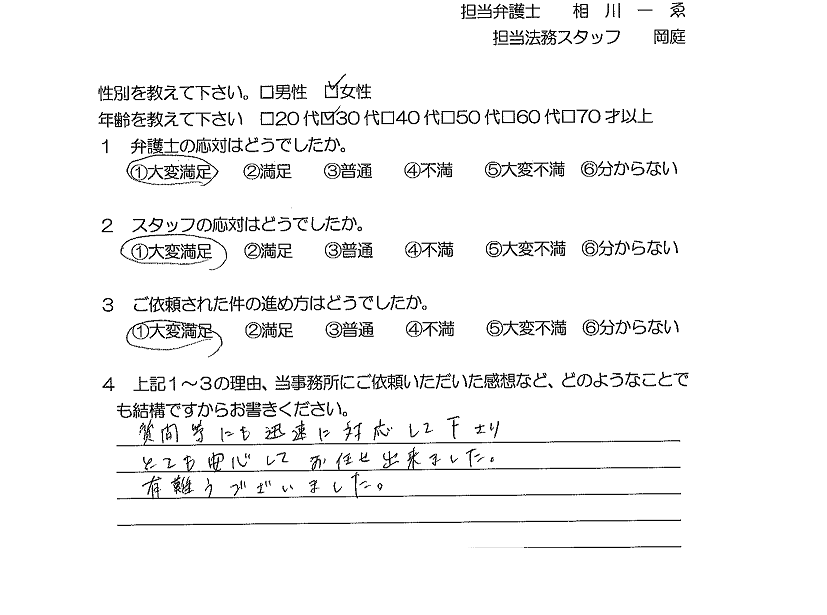 担当弁護士　相　川　一　ゑ
担当法務スタッフ　岡庭
性別を教えて下さい。□男性　☑女性
年齢を教えて下さい　□20代☑30代□40代□50代□60代□70才以上
１　弁護士の応対はどうでしたか。
①大変満足　②満足　③普通　④不満　⑤大変不満　⑥分からない
２　スタッフの応対はどうでしたか。
①大変満足　②満足　③普通　④不満　⑤大変不満　⑥分からない
３　ご依頼された件の進め方はどうでしたか。
①大変満足　②満足　③普通　④不満　⑤大変不満　⑥分からない
４　上記１～３の理由、当事務所にご依頼いただいた感想など、どのようなことで
も結構ですからお書きください。
質問等にも迅速に対応して下さり
とても安心してお任せ出来ました。
有難うございました。